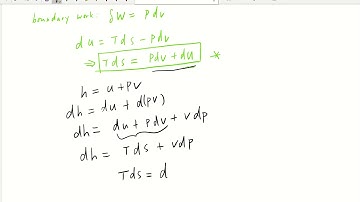 boundary work: δW = Pdv
du = Tds - Pdv
⇒ Tds = Pdv + du *
h = u + PV
dh = du + d(PV)
dh = du + Pdv + vdp
dh = Tds + vdp
Tds = d